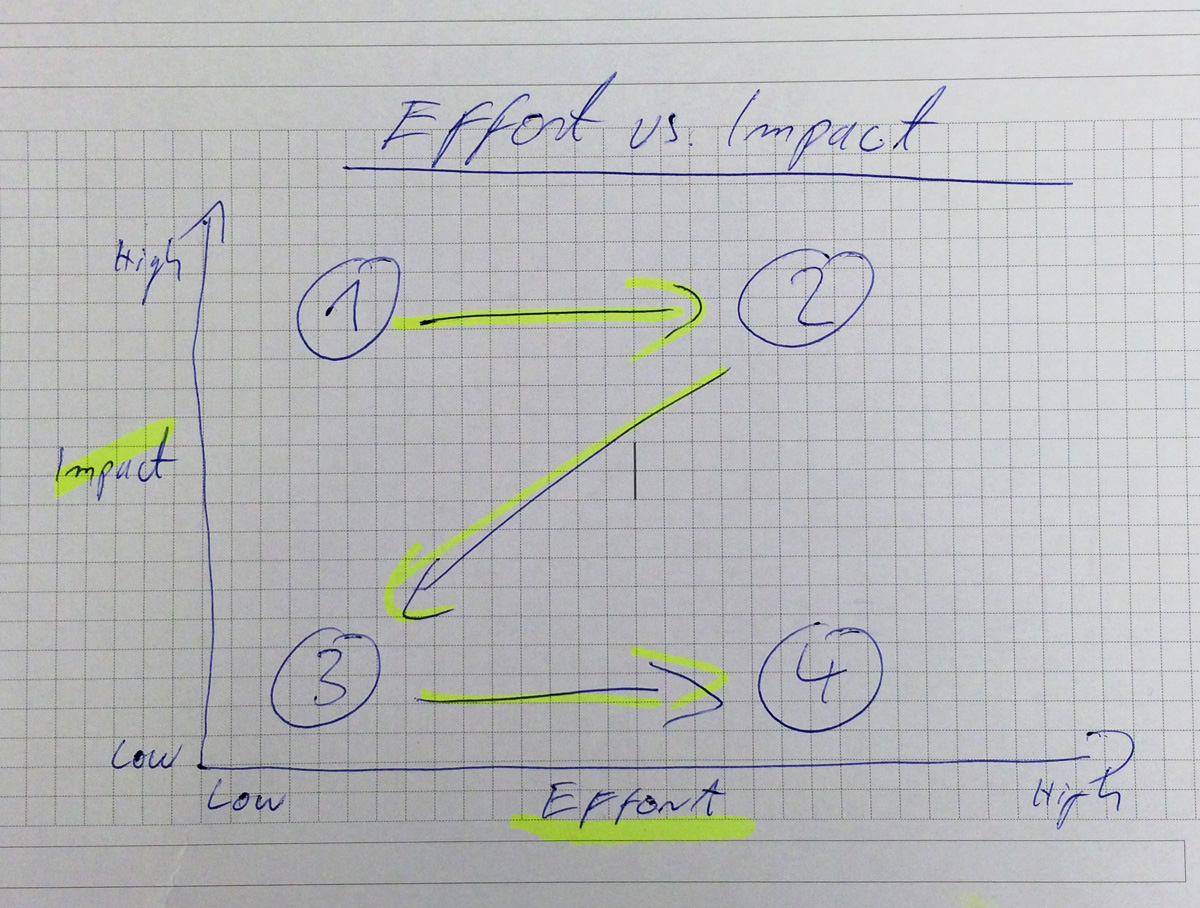 Effort vs. Impact
High
1
2
Impact
3
4
Low
Low
Effort
High